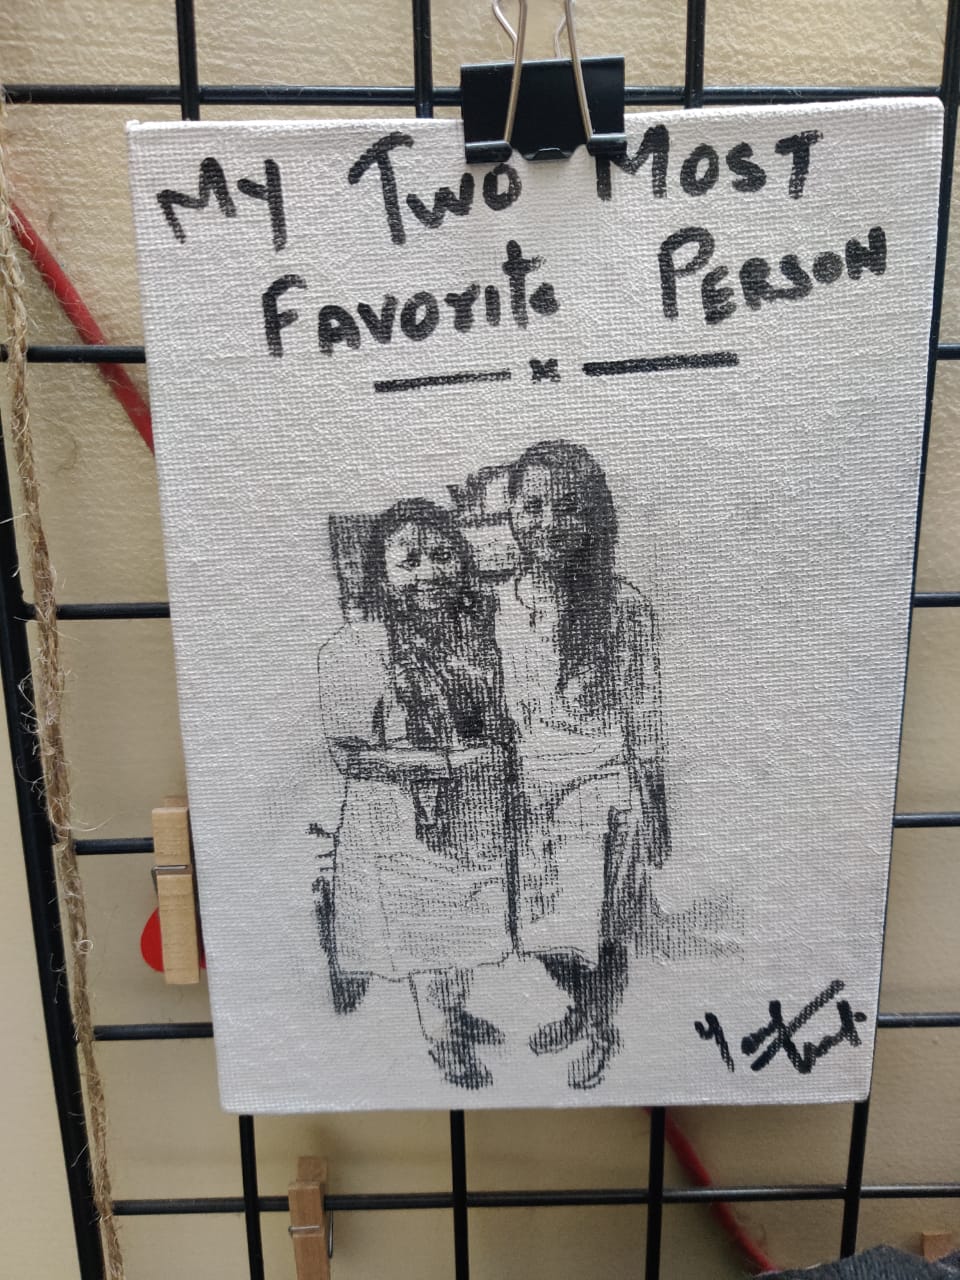 My Two Most
Favorite Person